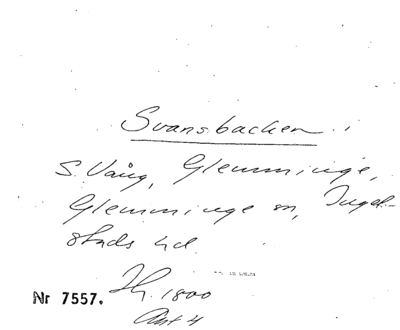 Svansbacken
S. Vång, Glemminge,
Glemminge sn, Ingel-
stads hd.
Nr 7557.
1800